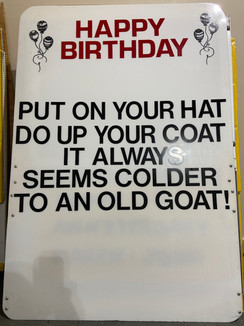 HAPPY
BIRTHDAY
PUT ON YOUR HAT
DO UP YOUR COAT
IT ALWAYS
SEEMS COLDER
TO AN OLD GOAT!